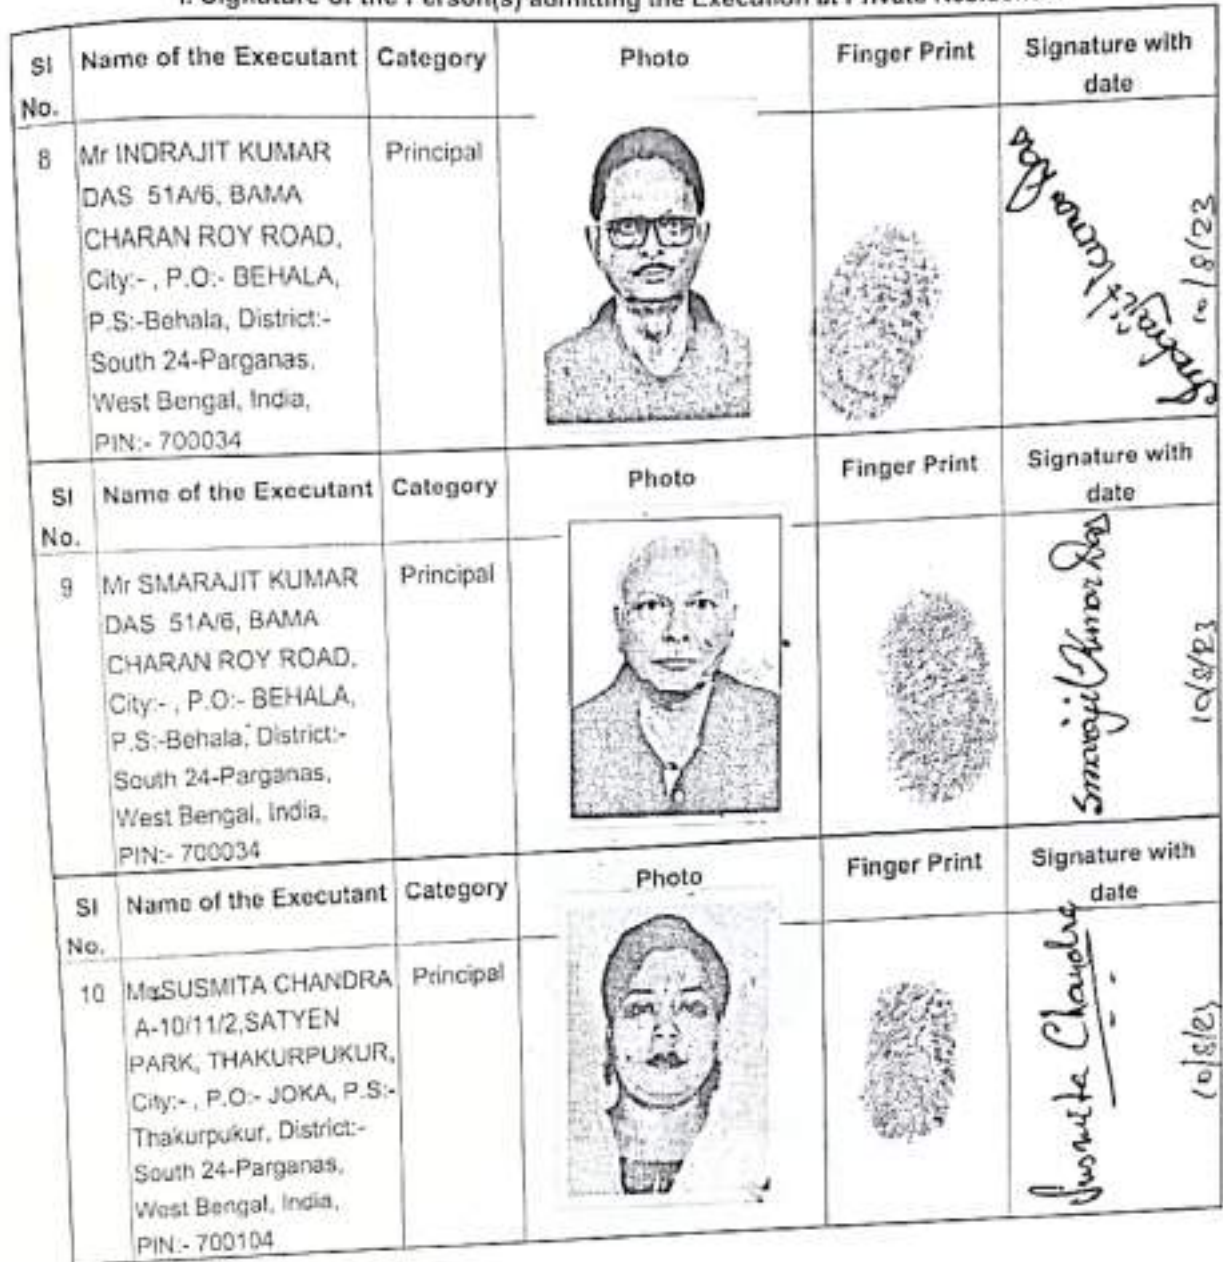 I. Signature of the Person(s) admitting the Execution at Private Residence.
Sl No. Name of the Executant Category Photo Finger Print Signature with date
8 Mr INDRAJIT KUMAR Principal
DAS 51A/6, BAMA
CHARAN ROY ROAD,
City:- , P.O:- BEHALA,
P.S:-Behala, District:-
South 24-Parganas,
West Bengal, India,
PIN:- 700034
Indrajit Kumar Das
10/8/23
Sl No. Name of the Executant Category Photo Finger Print Signature with date
9 Mr SMARAJIT KUMAR Principal
DAS 51A/6, BAMA
CHARAN ROY ROAD,
City:- , P.O:- BEHALA,
P.S:-Behala, District:-
South 24-Parganas,
West Bengal, India,
PIN:- 700034
Smarajit Kumar Das
10/8/23
Sl No. Name of the Executant Category Photo Finger Print Signature with date
10 SUSMITA CHANDRA Principal
A-10/11/2,SATYEN
PARK, THAKURPUKUR,
City:- , P.O:- JOKA, P.S:-
Thakurpukur, District:-
South 24-Parganas,
West Bengal, India,
PIN:- 700104
Susmita Chandra
10/8/23